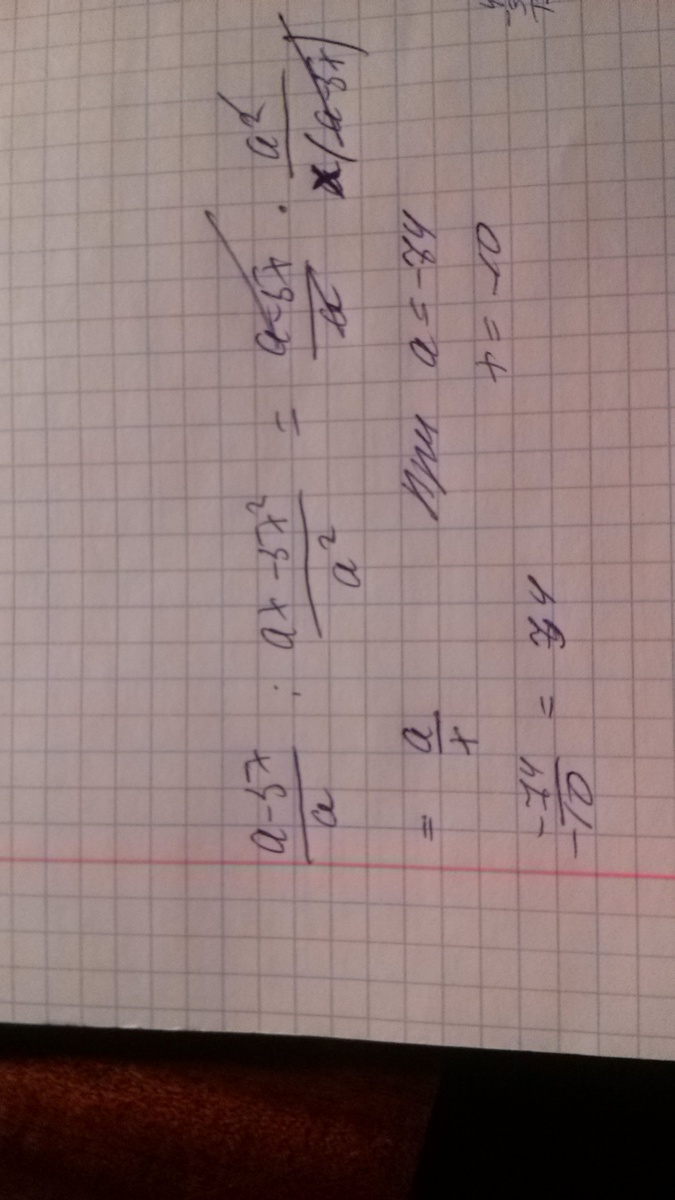 (a-5x)/a : (ax-5x²)/a² = (a-5x)/a · a²/(x(a-5x))
= a/x При a = -74
x = -10
-74/-10 = 7,4